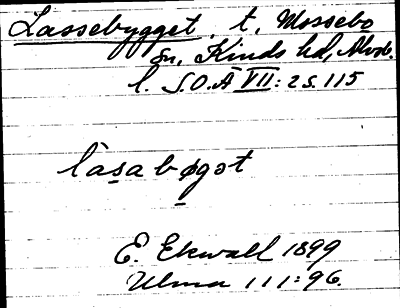 Lassebygget, t. Mossebo
sn, Kinds hd, Älvsb.
l. S.O.Ä VII: 2 s. 115
làsabøgət
E. Ekwall 1899
Ulma 111:96.